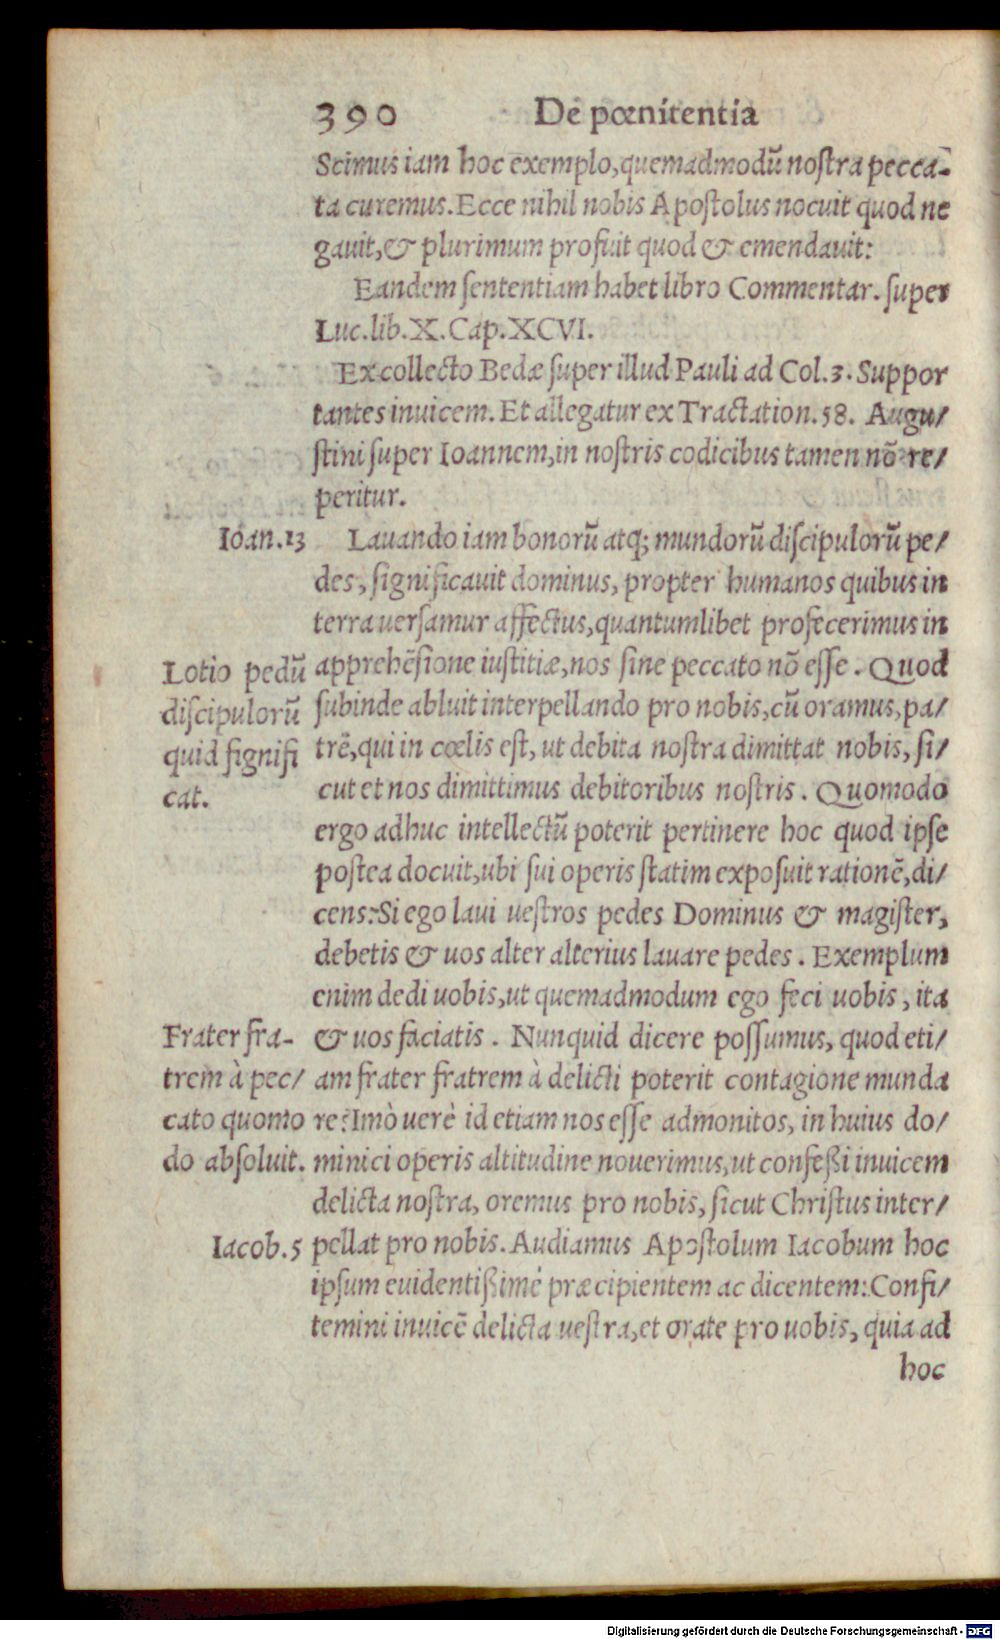 390 De pœnitentia
Scimus iam hoc exemplo, quemadmodū noſtra pecca-
ta curemus. Ecce nihil nobis Apoſtolus nocuit quod ne
gauit, & plurimum profuit quod & emendauit:
Eandem ſententiam habet libro Commentar. ſuper
Luc. lib. X. Cap. XCVI.
Ex collecto Bedæ ſuper illud Pauli ad Col. 3. Suppor
tantes inuicem. Et allegatur ex Tractation. 58. Augu/
ſtini ſuper Ioannem, in noſtris codicibus tamen nō re/
peritur.
Ioan. 13
Lauando iam bonorū atq; mundorū diſcipulorū pe/
des, ſignificauit dominus, propter humanos quibus in
terra uerſamur affectus, quantumlibet profecerimus in
Lotio pedū
diſcipulorū
quid ſignifi
cat.
apprehēſione iuſtitiæ, nos ſine peccato nō eſſe. Quod
ſubinde abluit interpellando pro nobis, cū oramus, pa/
trē, qui in cœlis eſt, ut debita noſtra dimittat nobis, ſi/
cut et nos dimittimus debitoribus noſtris. Quomodo
ergo adhuc intellectū poterit pertinere hoc quod ipſe
poſtea docuit, ubi ſui operis ſtatim expoſuit rationē, di/
cens: Si ego laui ueſtros pedes Dominus & magiſter,
debetis & uos alter alterius lauare pedes. Exemplum
enim dedi uobis, ut quemadmodum ego feci uobis, ita
Frater fra-
trem à pec/
cato quomo
do abſoluit.
& uos faciatis. Nunquid dicere poſſumus, quod eti/
am frater fratrem à delicti poterit contagione munda
re? Imò uerè id etiam nos eſſe admonitos, in huius do/
minici operis altitudine nouerimus, ut confeßi inuicem
delicta noſtra, oremus pro nobis, ſicut Chriſtus inter/
Iacob. 5
pellat pro nobis. Audiamus Apoſtolum Iacobum hoc
ipſum euidentißimè præcipientem ac dicentem: Confi/
temini inuicē delicta ueſtra, et orate pro uobis, quia ad
hoc
Digitalisierung gefördert durch die Deutsche Forschungsgemeinschaft - DFG